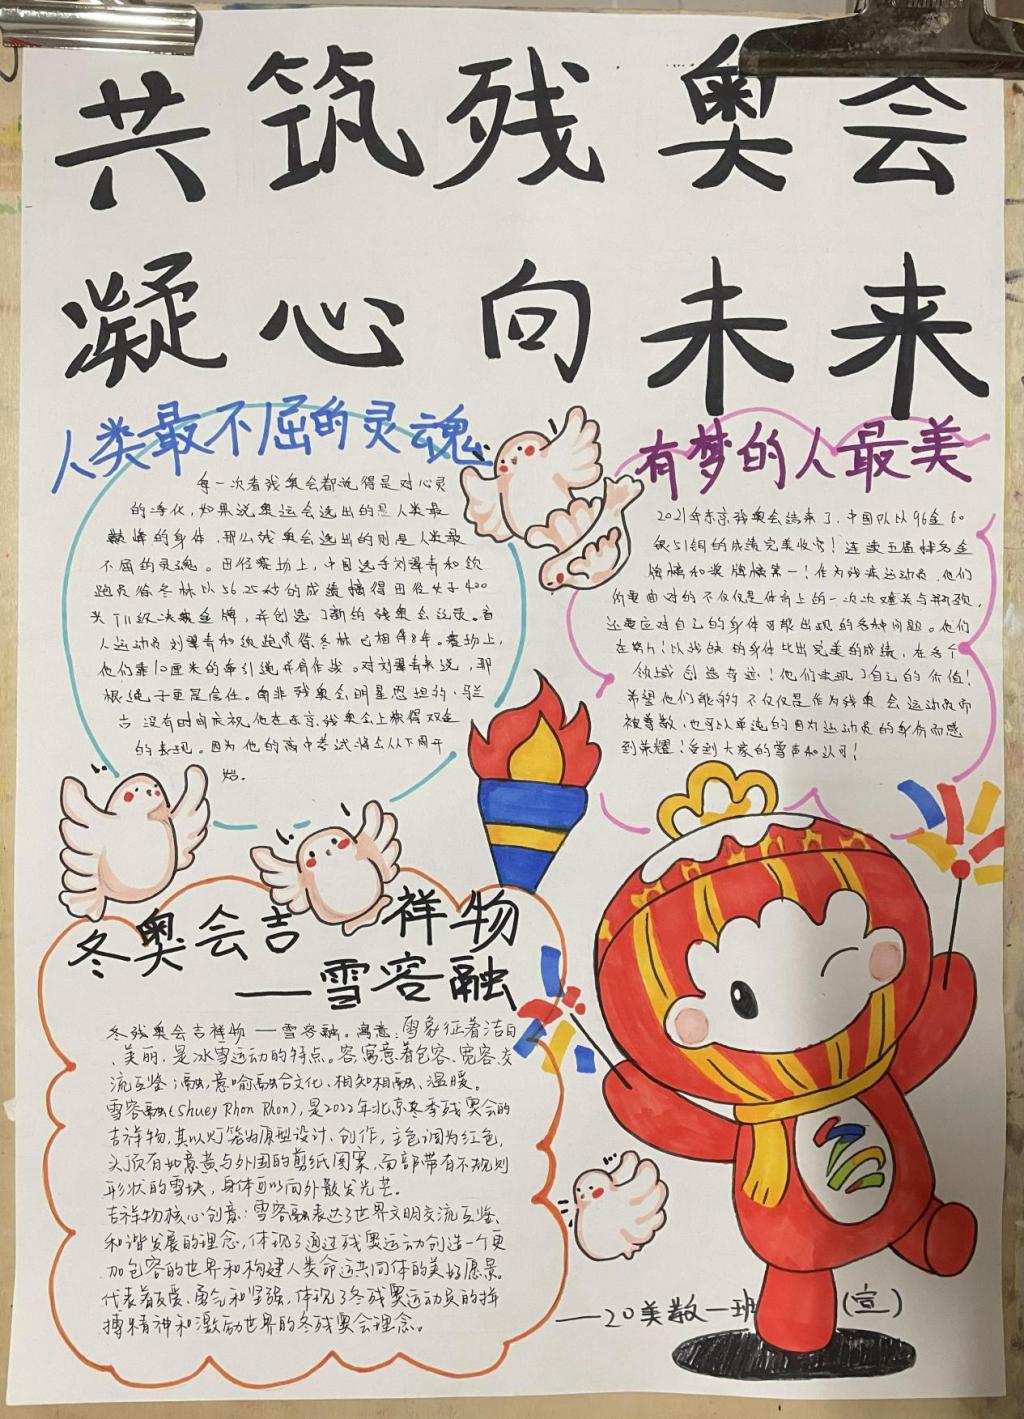 共筑残奥会
凝心向未来
人类最不屈的灵魂
每一次看残奥会都说得是对心灵
的净化,如果说奥运会选出的是人类最
的身件,那么残奥会选出的则是人类最
不屈的灵魂。田径赛场上,中国选手刘翠青和领
跑员徐冬林以56.25秒的成绩摘得田径女子400
米T11级决赛金牌,并创造了新的残奥会记录。盲
人运动员刘翠青和领跑员徐冬林已相伴8年。赛场上,
他们靠10厘米的牵引绳并肩作战。对刘翠青来说,那
根绳子更是信任。南非残奥会明星恩坦约·
没有时间庆祝他在东京残奥会上摘得双金
的表现。因为他的高中考试将会从下周开
始。
有梦的人最美
2021年东京残奥会结束了,中国队以96金60
银51铜的成绩完美收官!连续五届排名金
牌榜和奖牌榜第一!作为残疾运动员,他们
所要面对的不仅仅是体育上的一次次难关与瓶颈,
还要应对自己的身体可能出现的各种问题。他们
在努力!以残缺的身体比出完美的成绩,在各个
领域创造奇迹!他们实现了自己的价值!
希望他们能够不仅仅是作为残奥会运动员而
被尊敬,也可以单纯的因为运动员的身份而感
到荣耀!受到大家的掌声和认可!
冬奥会吉祥物
——雪容融
冬残奥会吉祥物—雪容融。寓意:雪象征着洁白
、美丽,是冰雪运动的特点。容,寓意着包容、宽容,交
流互鉴;融,意喻融合文化、相知相融、温暖。
雪容融(Shuey Rhon Rhon),是2022年北京冬季残奥会的
吉祥物,其以灯笼为原型设计、创作,主色调为红色,
头顶有如意黄与外围的剪纸图案,面部带有不规则
形状的雪块,身体可以向外散发光芒。
吉祥物核心创意:雪容融表达了世界文明交流互鉴、
和谐发展的理念,体现了通过残奥运动创造一个更
加包容的世界和构建人类命运共同体的美好愿景。
代表着友爱、勇气和坚强,体现了冬残奥运动员的拼
搏精神和激励世界的冬残奥会理念。
——20美教一班 (宣)